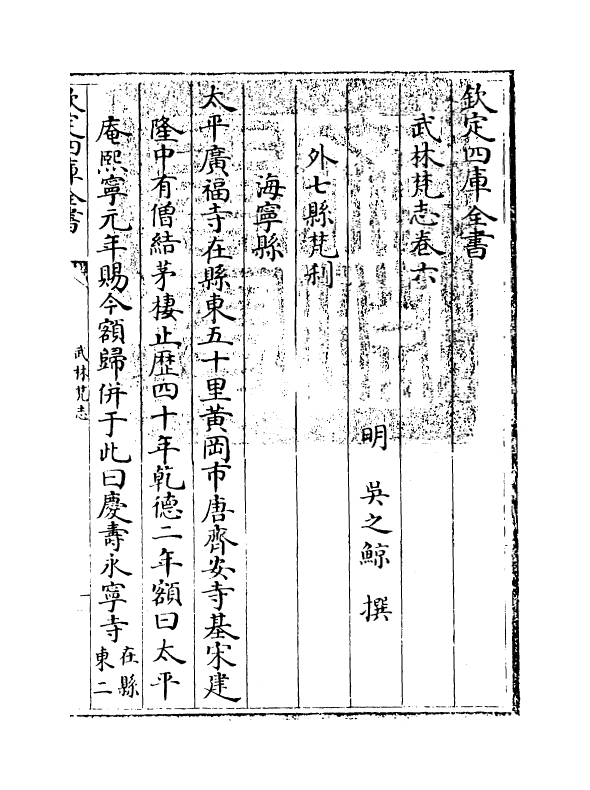 欽定四庫全書
武林梵志卷六
明 吳之鯨 撰
外七縣梵刹
海寧縣
太平廣福寺在縣東五十里黃岡市唐齊安寺基宋建
隆中有僧結茅棲止歴四十年乾德二年額曰太平
庵熙寧元年賜今額歸併于此曰慶壽永寧寺在縣
東二
欽定四庫全書
武林梵志
一